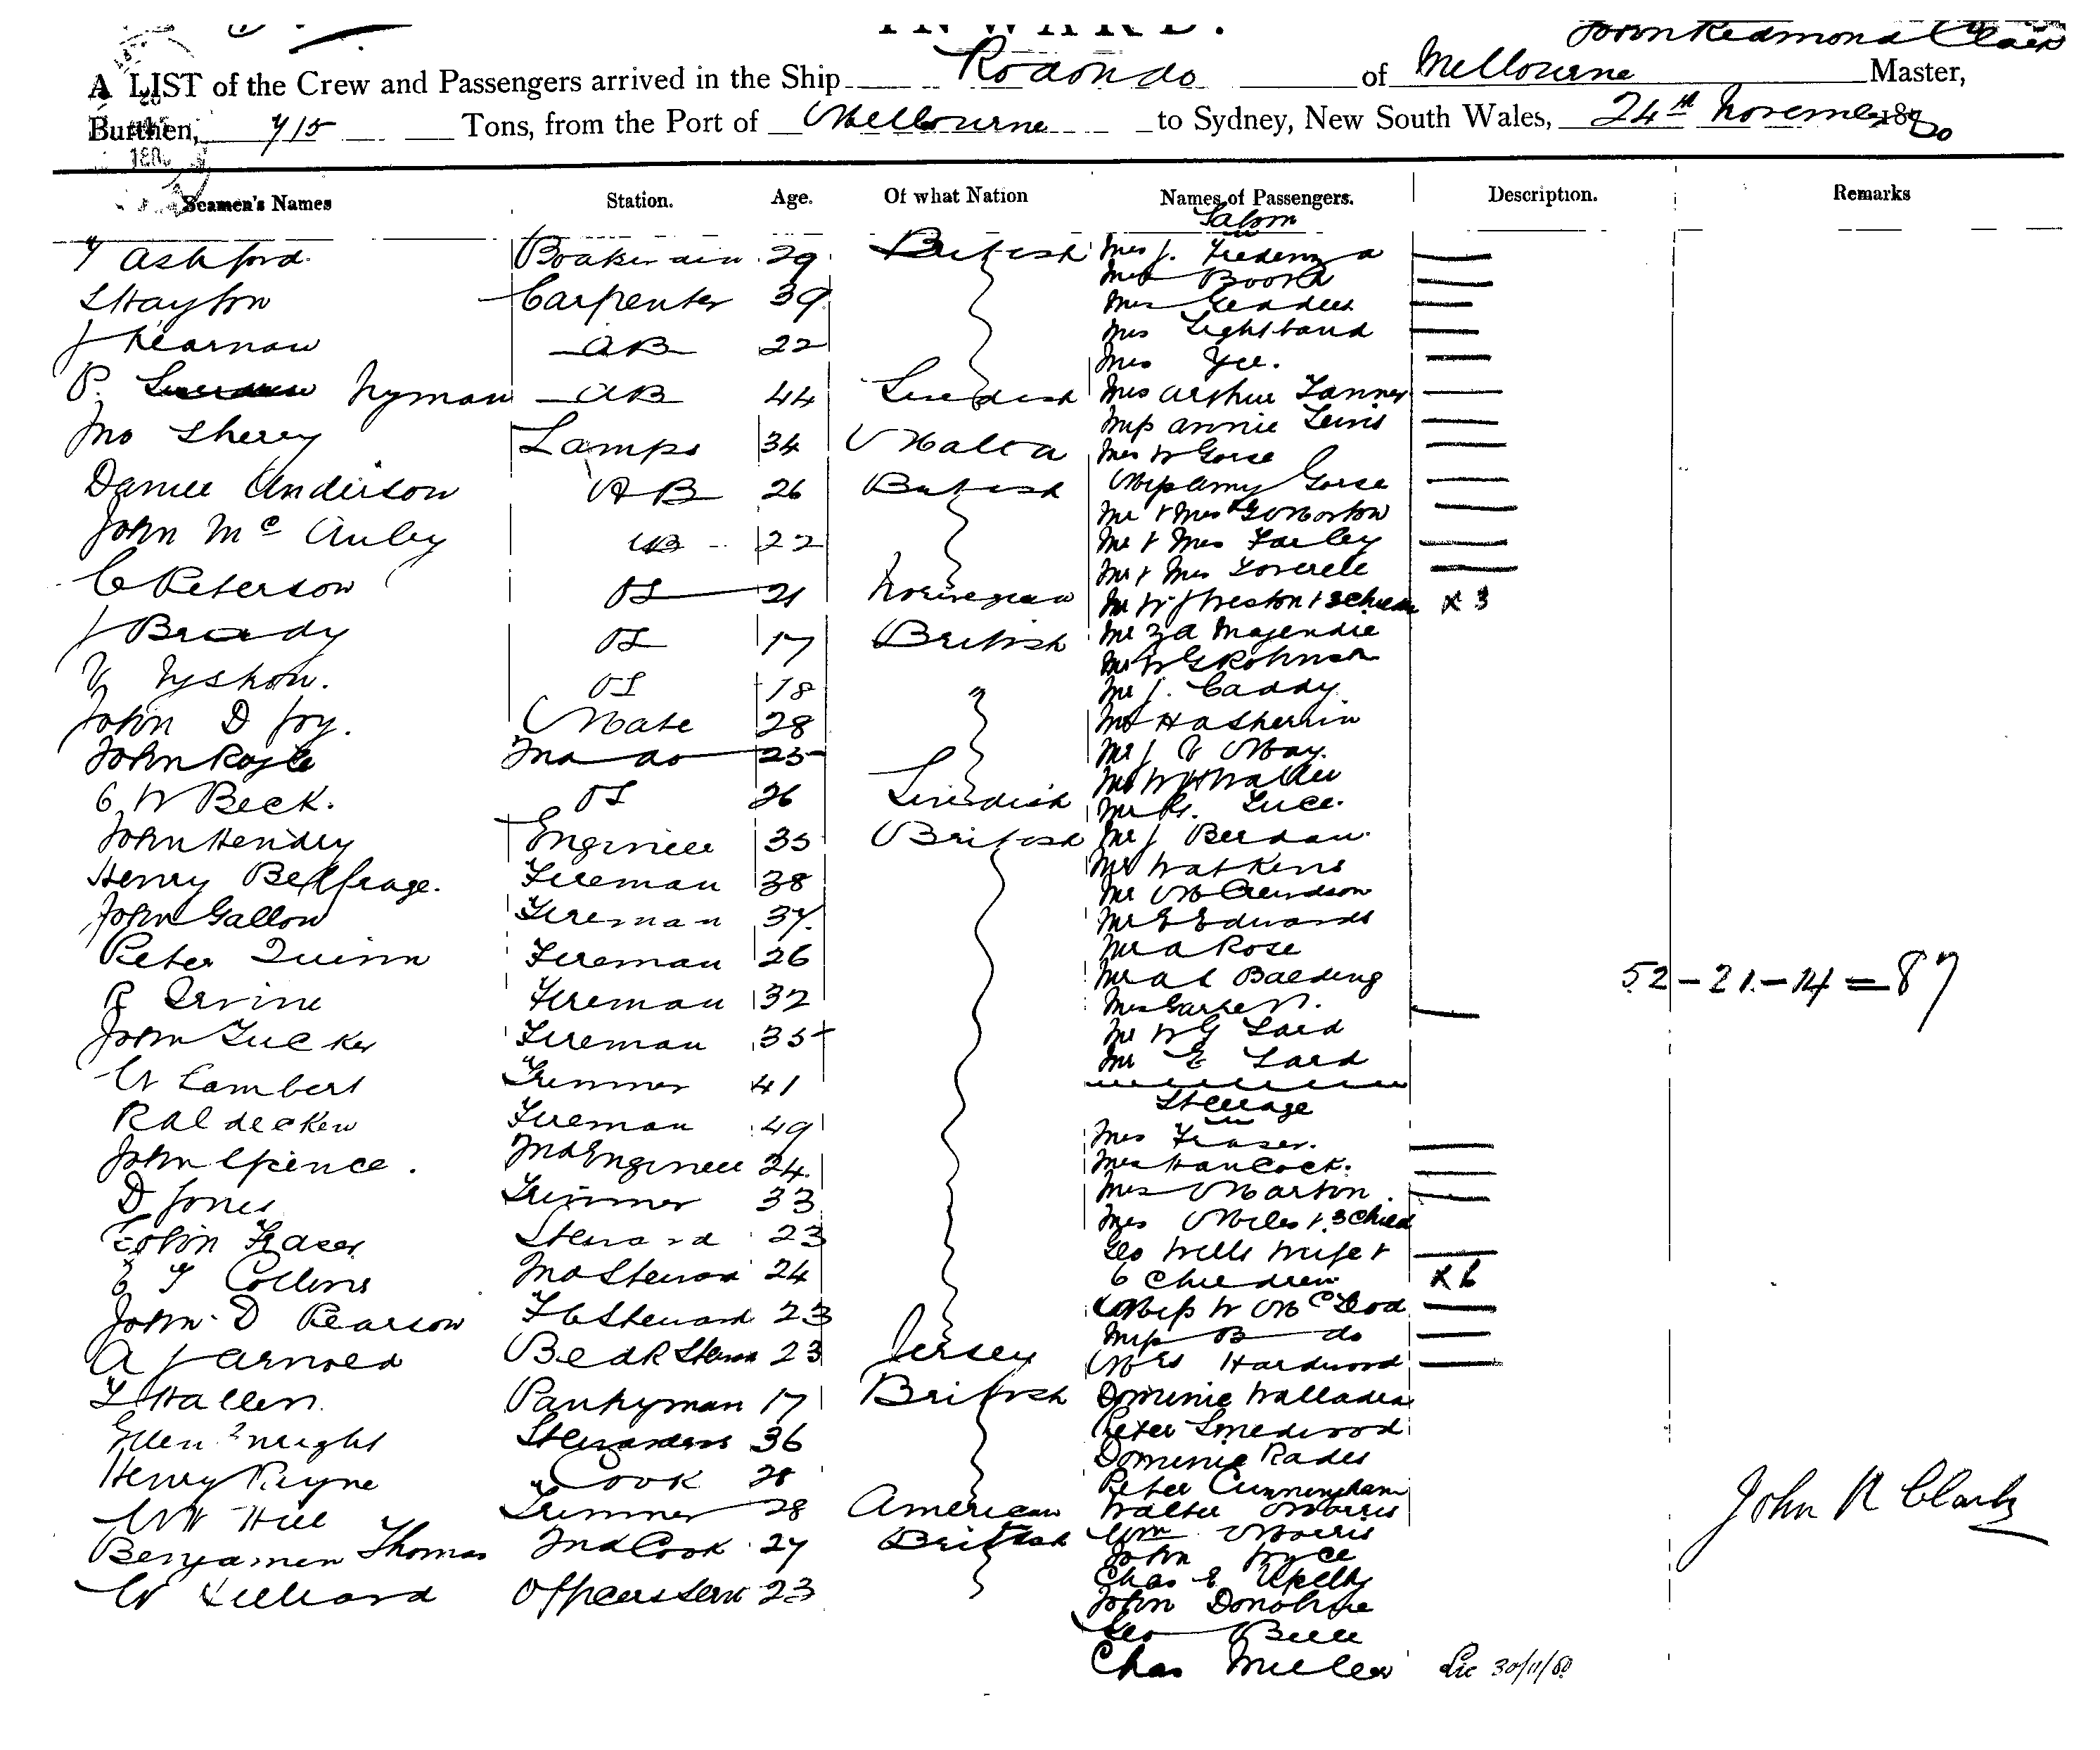 INWARD.
John Redmond Clark
A LIST of the Crew and Passengers arrived in the Ship Rodondo of Melbourne Master,
Burthen, 715 Tons, from the Port of Melbourne to Sydney, New South Wales, 24th November 1880
Seamen's Names Station. Age. Of what Nation Names of Passengers. Description. Remarks
Saloon
Ashford 29 British Mrs J.
S Hayton Carpenter 39 Mrs Booth
Mrs Geddes
J Kearnan AB 22 Mrs Lightband
Mrs Yee.
P. Nyman AB 44 Swedish Mrs Arthur Tanner
Miss Annie Lewis
Jno Sherry Lamps 34 Malta Mrs W Gorse
Daniel Anderson AB 26 British Miss Amy Gorse
Mr & Mrs Morton
John McAuley AB 22 Mr & Mrs Farley
Mr & Mrs
C Peterson OS 21 Norwegian Mr W J Preston & 3 Childn x 3
J Brady OS 17 British Mr Majendie
Mr W G Robinson
OS 18 Mr J. Caddy
John D Joy. Mate 28 Mr H A Sherwin
John Royle 2nd do 25 Mr J May.
Mr W H Waller
C. W Beck. OS 26 Swedish Mr R. Luce.
John Hendry Engineer 35 British Mr J
Mr Watkins
Henry Belfrage. Fireman 38 Mr
John Gallon Fireman 37. Mr E Edwards
Mr A Rose
Peter Quinn Fireman 26 Mr A C Balding
52 - 21 - 14 = 87
R Irvine Fireman 32 Mrs
John Tucker Fireman 35 Mr W G Laird
Mr E Laird
W Lambert Trimmer 41
Steerage
Fireman 49 Mrs Fraser.
John Spence. 2nd Engineer 24. Mrs Hancock.
D Jones Trimmer 33 Mrs Martin.
Mrs Miles & 3 Child
Colin Fraser Steward 23 Geo Wells Wife &
Collins 2nd Steward 24 6 Children x 6
John D Pearson F C Steward 23 Miss W McLeod
Miss B do
A J Arnold Bedr Stewd 23 Jersey Mrs Hardwood
T Hallen Pantryman 17 British Dominic Walladea
Peter Smedwood
Ellen Enright Stewardess 36 Dominic Rades
Henry Payne Cook 28 Peter Cunningham
W H Hill Trimmer 28 American Walter Morris
Wm Morris
Benjamen Thomas 2nd Cook 27 British John Joyce
Chas E
W Officers Servt 23 John Donohue
Geo Bell
Chas Miller 30/11/80
John R Clark